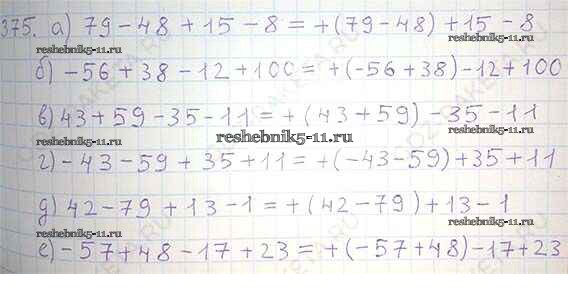 375. а) 79 - 48 + 15 - 8 = +(79 - 48) + 15 - 8
reshebnik5-11.ru
б) -56 + 38 - 12 + 100 = +(-56 + 38) - 12 + 100
reshebnik5-11.ru
в) 43 + 59 - 35 - 11 = +(43 + 59) - 35 - 11
reshebnik5-11.ru
reshebnik5-11.ru
г) -43 - 59 + 35 + 11 = +(-43 - 59) + 35 + 11
д) 42 - 79 + 13 - 1 = +(42 - 79) + 13 - 1
reshebnik5-11.ru
е) -57 + 48 - 17 + 23 = +(-57 + 48) - 17 + 23
reshebnik5-11.ru